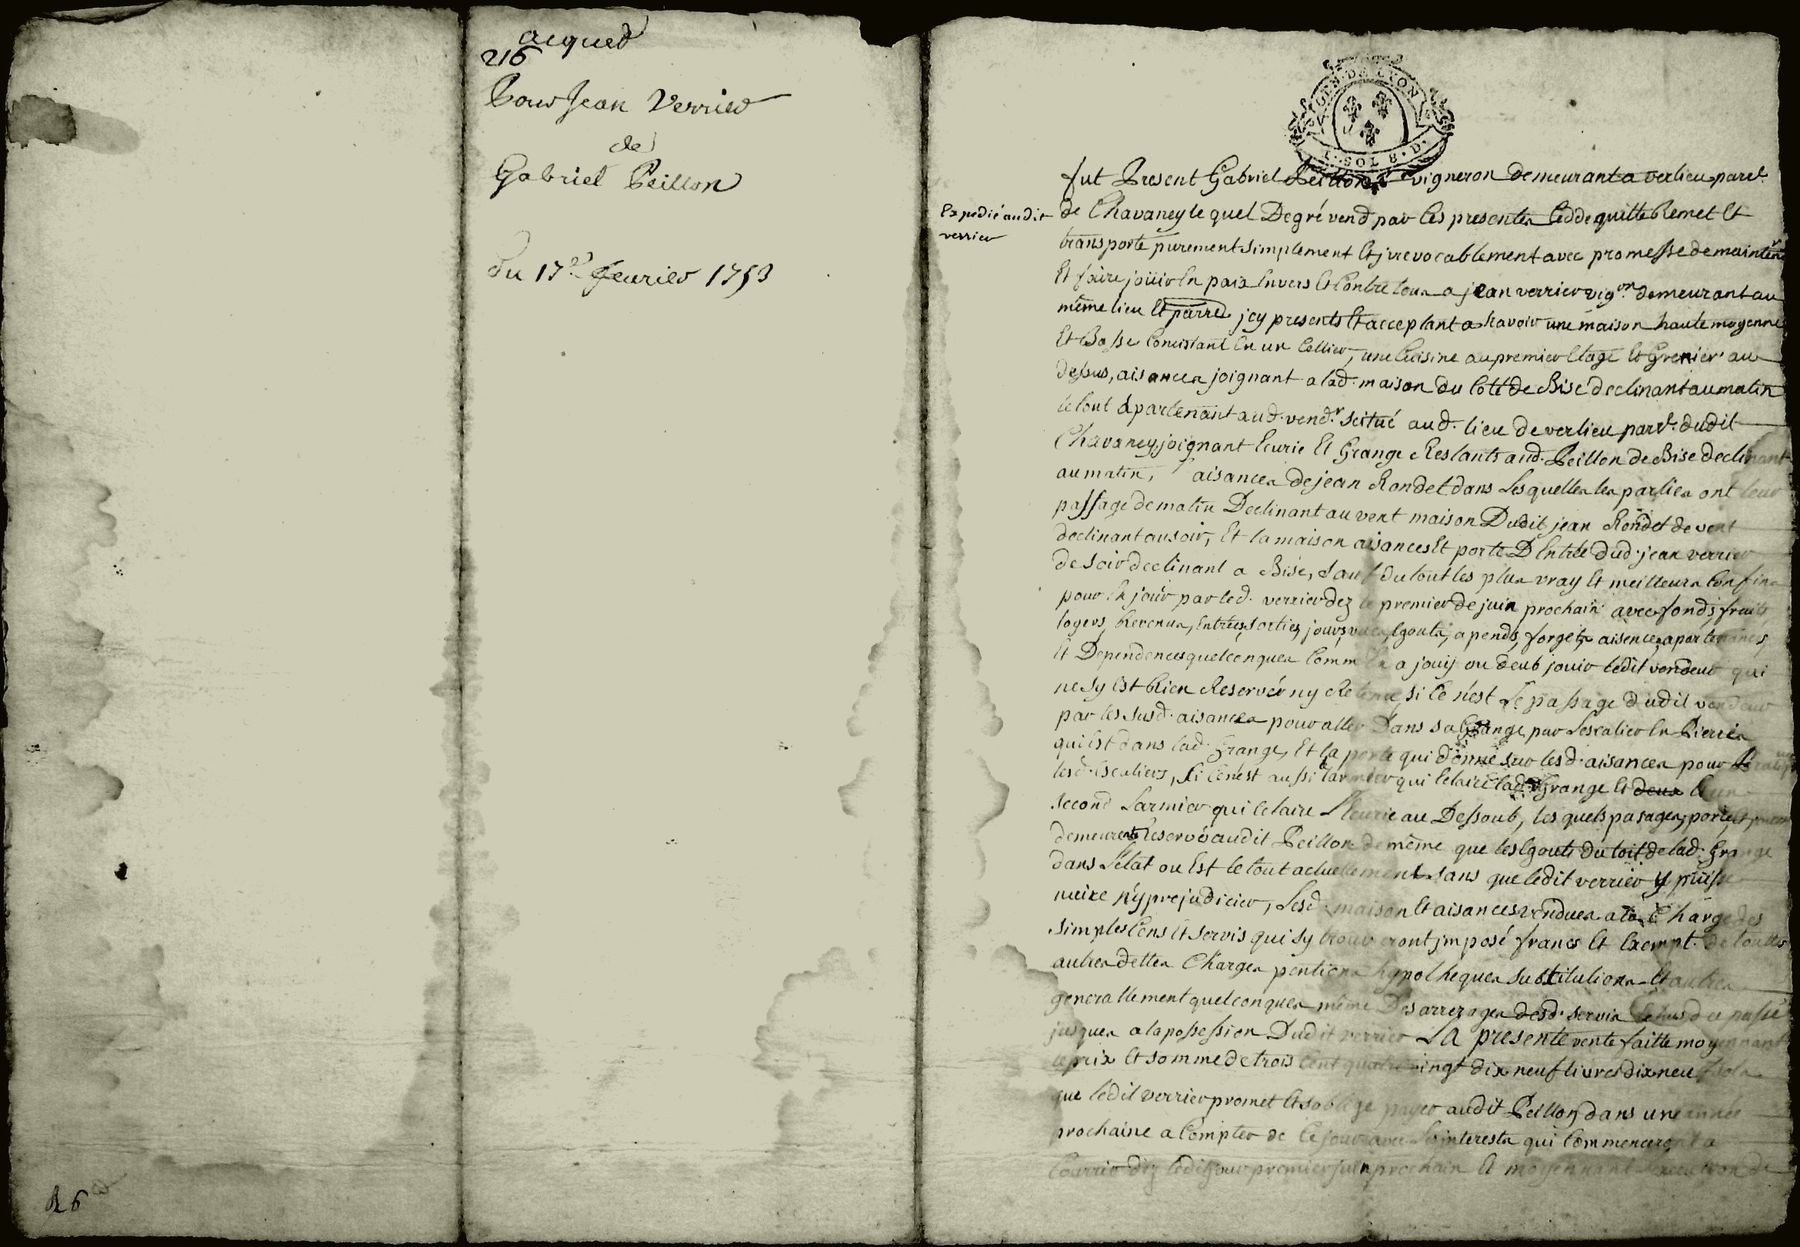 acquet
216
Pour Jean Verrier
de
Gabriel Peillon
du 17e feurier 1753
16
GEN. DE LYON
1. SOL 8. D.
Expedié audit
verrier
fut Present Gabriel Peillon vigneron demeurant a verlieu parre.
de Chavaney lequel De gré vend par ces presentes cedde quitte Remet Et
transporte purement simplement Et jrrevocablement avec promesse de maintenir
Et faire joüir En paix Envers Et Contre tous a jean verrier vigon. demeurant au
même lieu Et parre. jcy present Et acceptant a Scavoir une maison haute moyenne
Et Basse Concistant En un Cellier, une Cuisine au premier Etage Et Grenier au
dessus, aisances joignant a lad. maison du Cotté de Bise declinant au matin
le tout apartenant aud. vendr. scitué aud. lieu de verlieu parre. dudit
Chavaney, joignant Ecurie Et Grange Restants aud. Peillon de Bise declinant
au matin, aisances de jean Rondet dans Lesquelles les parties ont leur
passage de matin Declinant au vent maison Dudit jean Rondet de vent
declinant au soir, Et la maison aisances Et porte D'Entrée dud. jean verrier
de soir declinant a Bise, sauf du tout les plus vray Et meilleurs Confins
pour En joüir par led. verrier dez le premier de juin prochain avec fonds, fruits
loyers, Revenus, Entrées, sorties, jours, vües, Egouts, apends, forgets, aisences, apartenances,
Et Dependences quelconques Comm En a jouy ou deub jouir ledit vendeur qui
ne sy Est Rien Reservé ny Retenu, si Ce n'est Le passage dudit vendeur
par les susd. aisances pour aller Dans sa Grange, par Lescalier En Pierres
qui Est dans lad. Grange, Et la porte qui donne sur lesd. aisances pour
lesd. Escaliers, si Ce n'est aussi Larmier qui Eclaire lad. Grange Et deux Et un
second Larmier qui Eclaire L'Ecurie au Dessoub, lesquels pasages, porte,
demeurent Reservés audit Peillon de même que les Egouts du toit de lad. Grange
dans L'Etat ou Est le tout actuellement sans que ledit verrier y puisse
nuire n'y prejudicier, Lesd. maison Et aisances vendues a la Charge des
simples Cens Et servis qui sy trouveront jmposé francs Et Exempt. de touttes
autres dettes Charges pentions hypotheques substitutions Et autres
generallement quelconques même Des arrerages desd. servis Echus de ce passé
jusques a la possession Dudit verrier La presente vente faitte moyennant
le prix Et somme de trois Cent quatre vingt dix neuf livres dix neuf sols
que ledit verrier promet Et soblige payer audit Peillon dans une année
prochaine a Compter de Ce jour avec Les interests qui Commenceront a
Courrir dez ledit jour premier juin prochain Et moyennant Execution de